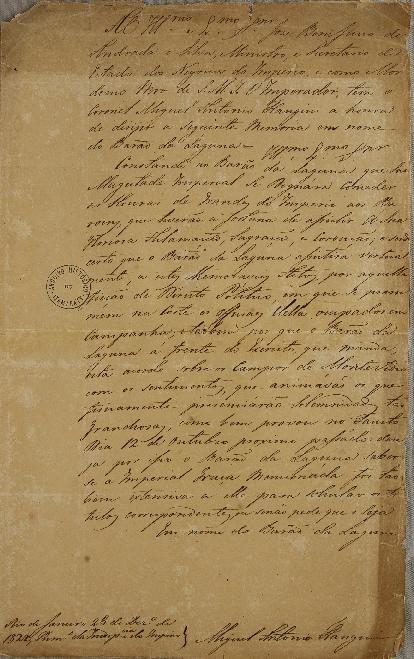 Ill.mo e Ex.mo Snr
José Bonifacio de
Andrada e Silva, Ministro, e Secretario de
Estado dos Negocios do Imperio, e como Mor
domo Mor de S. M. I. o Imperador, tem o
Coronel Miguel Antonio Flangini a honra
de dirigir a seguinte Memoria em nome
do Barão da Laguna =
Constando ao Barão da Laguna que Sua
Magestade Imperial Se Dignara Conceder
as Honras de Grandes do Imperio aos Ba
roens, que tiverão a fortuna de assistir A Sua
Gloriosa Aclamação, Sagração, e Coroação; sendo
certo que o Barão da Laguna assistira virtual
mente a estes Memoraveis Actos, por aquella
ficção de Direito
em que se presu
mem na Corte os Officiaes della ocupados em
Campanha, e tambem por que o Barão da
Laguna a frente do Exercito que manda
sobre os Campos de Montevideo
com os sentimentos, que animavão os que
presenciarão Solemnidades tão
Grandiosas, como bem provou no Fausto
Dia 12 de Outubro proximo passado:
por isso o Barão da Laguna saber
se a Imperial Graça Mencionada foi tam
bem extensiva a elle para
correspondentes, ou senão pede que o seja
Em nome do Barão da Laguna
Rio de Janeiro 26 de Dez.o de
1822, Prim.o da Indep.cia e do Imperio }
Miguel Antonio Flangini